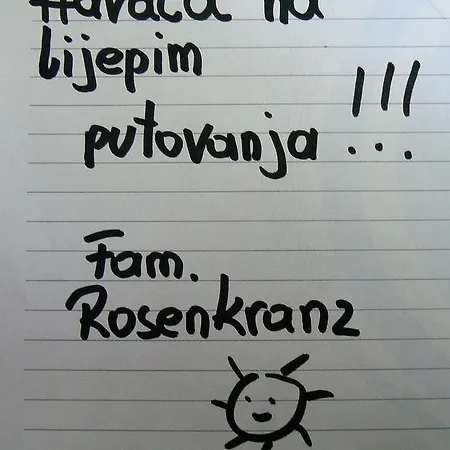 na
lijepim
putovanja !!!
Fam.
Rosenkranz